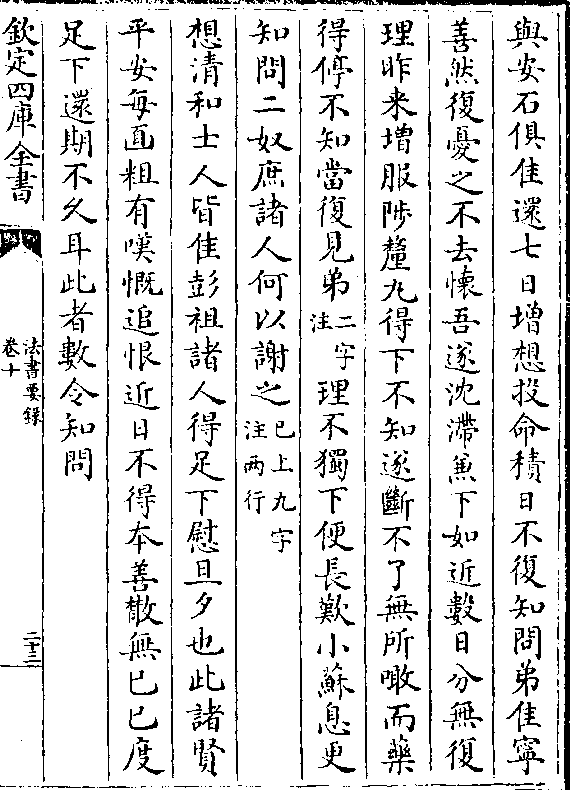 與安石俱佳還七日增想投命積日不復知問弟佳寧
善然復憂之不去懷吾遂沈滯兼下如近數日分無復
理昨来增服陟釐丸得下不知遂斷不了無所噉而藥
得停不知當復見弟二字注理不獨下便長歎小蘇息更
知問二奴庶諸人何以謝之已上九字注兩行
想清和士人皆佳彭祖諸人得足下慰旦夕也此諸賢
平安每面粗有嘆慨追恨近日不得本善散無已已度
足下還期不久耳此者數令知問
欽定四庫全書
法書要錄
卷十
二十二